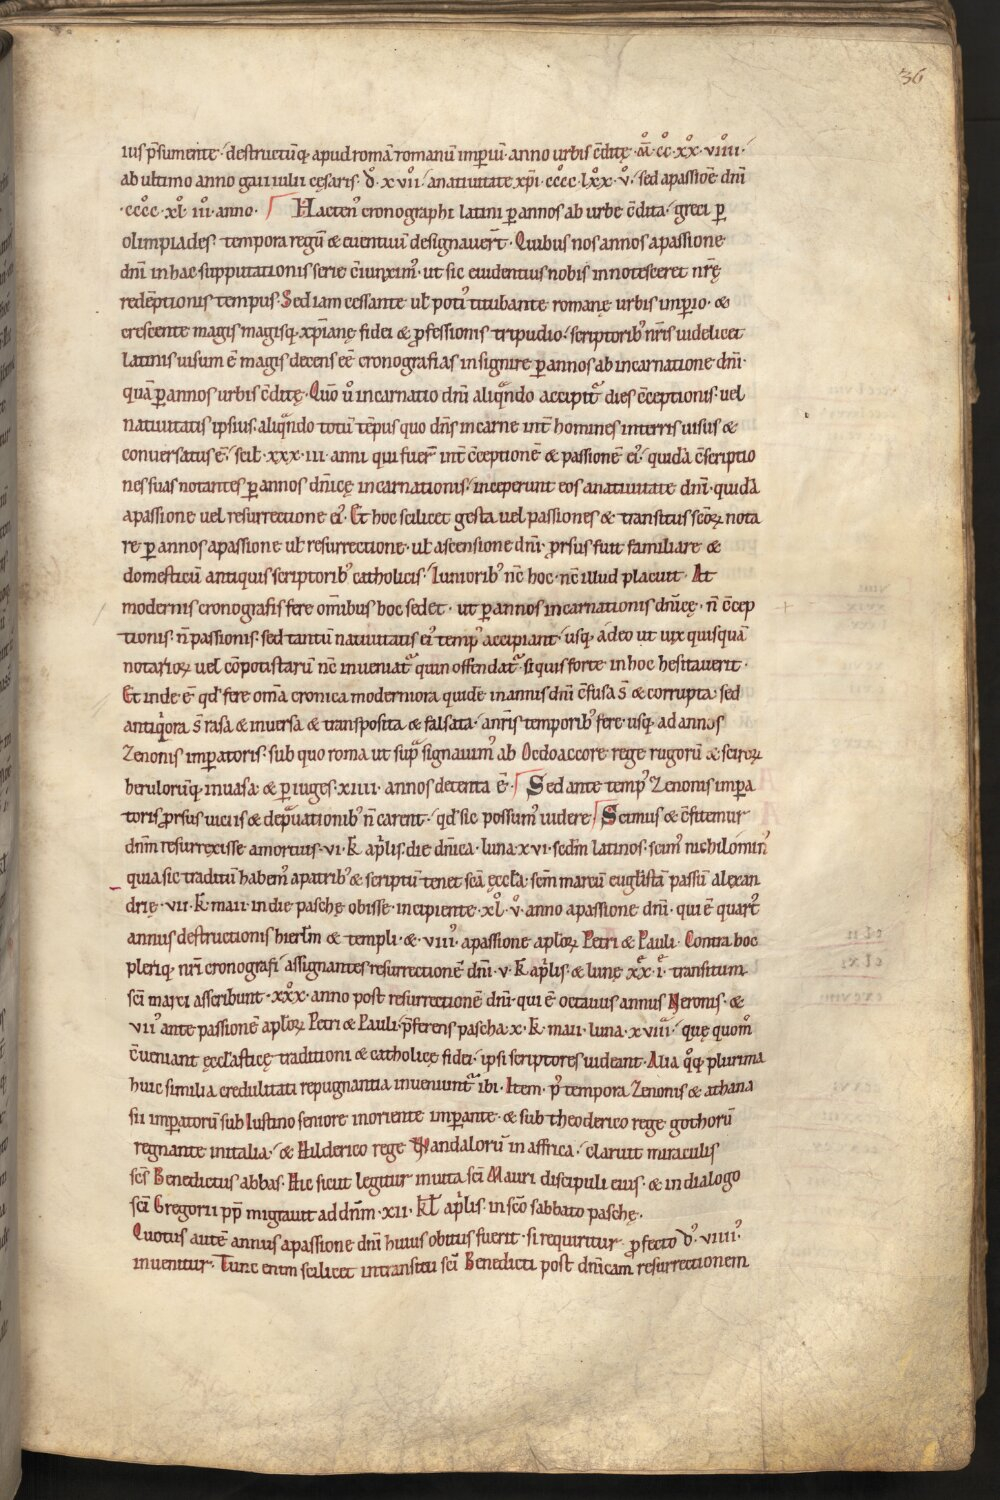 36
ius p̄sumente· destructūq; apud romā romanū imꝑiū· anno urbis c̄ditę ·M̊·cc̊·xx̊·viiii̊·
ab ultimo anno gaii iulii cęsaris· d̊·xvii̊· a natiuitate xp̄i cccc̊·lxx̊·v̊· sed a passiōe dn̄i
·cccc̊·xl̊·iii̊ anno· Hactenꝰ cronographi latini ꝑ annos ab urbe c̄dita· greci ꝑ
olimpiades tempora regū & euentuū designauer̄t· Quibus nos annos a passione
dn̄i in hac supputationis serie c̄iunximꝰ· ut sic euidentius nobis innotesceret nr̄ę
redēptionis tempus· Sed iam cessante ul̄ potiꝰ titubante romanę urbis imꝑio· &
crescente magis magisq; xp̄ianę fidei & ꝓfessionis tripudio· scriptoribꝰ nr̄is uidelicet
latinis uisum ē magis decens eē cronografias insignire ꝑ annos ab incarnatione dn̄i·
quā ꝑ annos urbis c̄ditę· Quō ů incarnatio dn̄i aliqᷓndo accipitᷣ dies c̄ceptionis· uel
natiuitatis ipsius· aliqᷓndo totū tēpus quo dn̄s in carne int̄ homines in terris uisus &
conuersatus ē· scil̄·xxx·iii· anni qui fuer̄ int̄ c̄ceptionē & passionē eiꝰ· quidā c̄scriptio
nes suas notantes ꝑ annos dn̄icę incarnationis· inceperunt eos a natiuitate dn̄i· quidā
a passione uel resurrectione eiꝰ· Et hoc scilicet gesta uel passiones & transitus sc̄oꝝ nota
re ꝑ annos a passione ul̄ resurrectione· ul̄ ascensione dn̄i· ꝓrsus fuit familiare &
domesticū antiquis scriptoribꝰ catholicis· Iunioribꝰ nec̄ hoc· nec̄ illud placuit· At
modernis cronografis fere om̄ibus hoc sedet· ut ꝑ annos incarnationis dn̄icę· n̄ c̄cep
tionis· n̄ passionis· sed tantū natiuitatis eiꝰ tempꝰ accipiant· usq; adeo ut uix quisquā
notarioꝝ uel cōpotistarū nc̄ inueniatᷣ quin offendatᷣ· si quis forte in hoc hesitauerit·
Et inde ē qd̄ fere om̄a cronica moderniora quidē in annis dn̄i c̄fusa s̄ & corrupta· sed
antiqͥora s̄ rasa & inuersa & transposita & falsata· a nr̄is temporibꝰ fere usq; ad annos
Zenonis imꝑatoris· sub quo roma ut supᷓ signauimꝰ ab Ocdoaccore rege rugorū & sciroꝝ
herulorūq; inuasa· & ꝑ iuges·xiiii· annos detenta ē· Sed ante tempꝰ Zenonis imꝑa
toris ꝓrsus uiciis & depᷓuationibꝰ n̄ carent· qd̄ sic possumꝰ uidere Scimus & c̄fitemur
dn̄m resurrexisse a mortuis·vi·K̄ apͥlis· die dn̄ica· luna·xvi· sedm̄ latinos· scimꝰ nichilominꝰ
quia sic traditū habemꝰ a patribꝰ & scriptū tenet sc̄a ęccl̄a· scm̄ marcū eugl̄istā passū alexan
drię·vii·K̄ maii· in die paschę obisse· incipiente·xl̊·v̊· anno a passione dn̄i· qui ē quartꝰ
annus destructionis hierl̄m & templi· &·viiiꝰ· a passione apl̄oꝝ Petri & Pauli· Contra hoc
pleriq; nr̄i cronografi assignantes resurrectionē dn̄i·v·K̄ apͥlis· & lunę xx̊·i̊· transitum
sc̄i marci asseribunt·xxx̊· anno post resurrectionē dn̄i· qui ē octauus annus Neronis· &
viiꝰ ante passionē apl̄oꝝ Petri & Pauli· p̄ferens pascha·x·K̄ maii· luna·xviii̊· quę quom̊
c̄ueniant ęccl̄asticę traditioni & catholicę fidei· ipsi scriptores uideant· Alia qͦq; plurima
huic similia credulitati repugnantia inueniuntᷣ ibi· Item· pꝰ tempora Zenonis & athana
sii imꝑatorū sub Iustino seniore in oriente imꝑante· & sub theoderico rege gothorū
regnante in italia· & Hilderico rege Wandalorū in affrica· claruit miraculis
sc̄s Benedictus abbas· Hic sicut legitur in uita sc̄i Mauri discipuli eius· & in dialogo
sc̄i Gregorii pp̄ migrauit ad dn̄m·xii·Kl̄ apͥlis· in sc̄o sabbato paschę·
Quotus autē annus a passione dn̄i huius obitus fuerit· si requiritur· ꝓfecto d̊·viiiiꝰ·
inuenitur· Tunc enim scilicet in transitu sc̄i Benedicti post dn̄icam resurrectionem